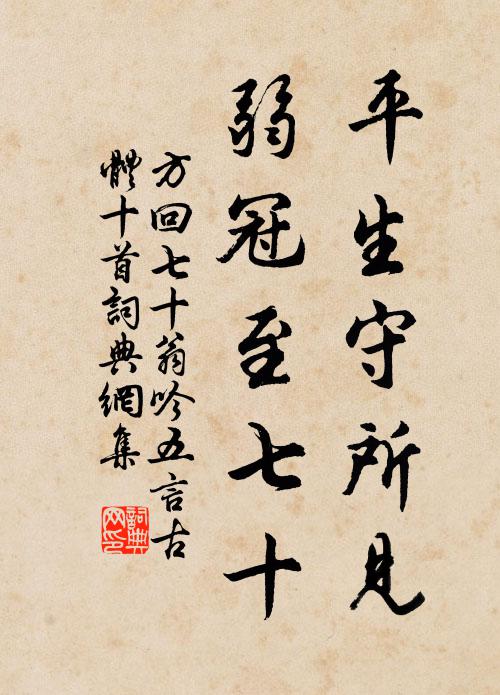 平生守所見
弱冠至七十
方回七十翁吟五言古
體十首詞典網集
詞典
网印